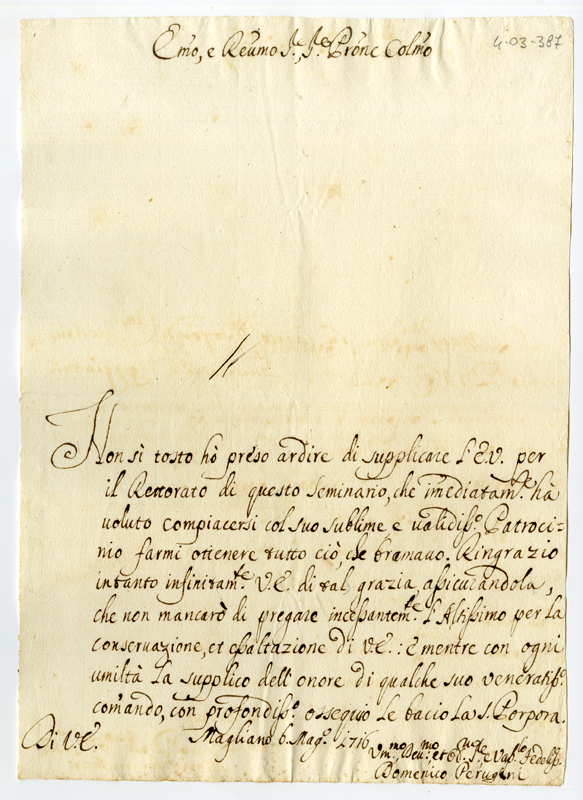 4-03-387
Emo, e Reumo Sr., Sr. Prone Colmo
Non sì tosto hò preso ardire di supplicare l'E.V. per
il Rettorato di questo seminario, che imediatamte. hà
voluto compiacersi col suo sublime e validisso. Patroci=
nio farmi ottenere tutto ciò, che bramavo. Ringrazio
intanto infinitamte. V.E. di tal grazia, assicurandola,
che non mancarò di pregare incessantemte. l'Altissimo per la
conservazione, et esaltazione di V.E.: E mentre con ogni
umiltà la supplico dell'onore di qualche suo veneratisso.
comando, con profondisso. ossequio le bacio la S. Porpora.
Di V.E. Magliano 6. Mago. 1716
Ummo. Deumo. et Fedeliss.
Domenico Perugini